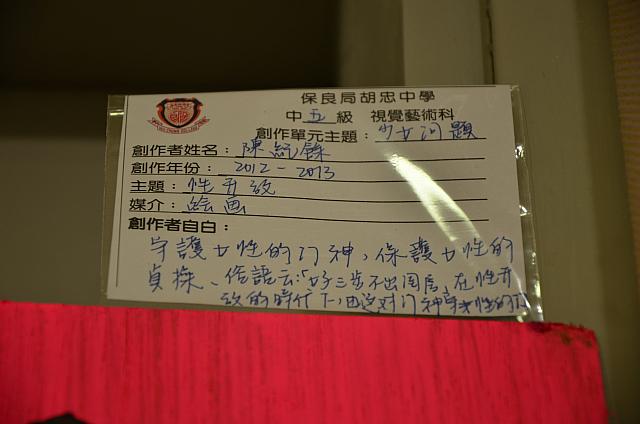 保良局胡忠中學
中 五 級 視覺藝術科
創作單元主題：少女问題
創作者姓名：陳
創作年份：2012-2013
主題：性开放
媒介：绘画
創作者自白：
守護女性的门神，保護女性的
貞操、俗語云:「好三步不出闺房」在性开
放的時代下,